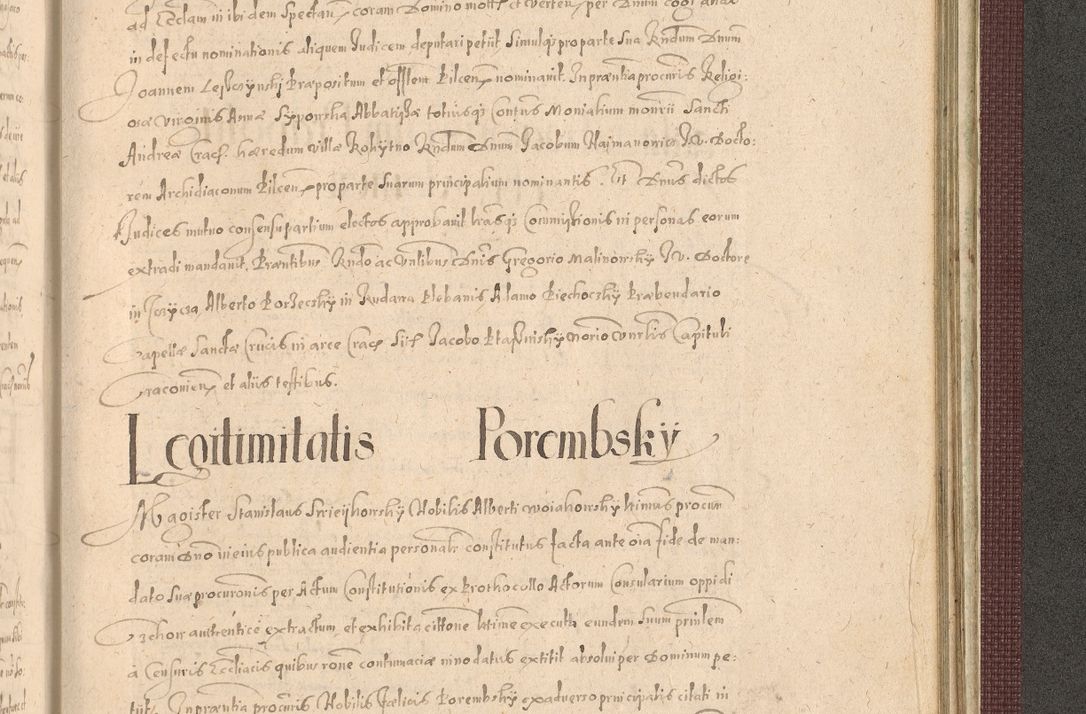 ad Ecclam in ibidem Spectan coram Domino
in defectu nominationis aliquem Judicem deputari petiit Simulqȝ pro parte Sua Rndum Dnum
Joannem Lesczynski Præpositum et offlem Kilcen nominavit. In præntia procuris Religi:
osæ Virginis Annæ Sÿpowska Abbatißæ totiusqȝ Contus Monialium monrii Sancti
Andreæ Crac. hæredum villæ Rokytno Rndum Dnum Jacobum Najmanowicz J. V. Docto:
rem Archidiaconum Kilcen pro parte Suarum principalium nominantis. Et Dnus dictos
Judices mutuo consensu partium electos approbavit lrasqȝ Commißionis in personas eorum
extradi mandavit. Præntibus Rndo ac Vnlibus Dnis Gregorio Malinowskÿ J. V. Doctore
in Alberto Korzecskÿ in Rudawa Plebanis Adamo Piechockÿ Præbendario
Capellæ Sanctæ Crucis in arce Crac Siis Jacobo norio Capituli
Cracovien et aliis testibus.
Legitimitatis Porembskÿ
Magister Stanislaus Nobilis Alberti Woiakowskÿ ltimus procur
coram Dno in eius publica audientia personalr constitutus facta ante oia fide de man:
dato Suæ procuronis per Actum Constitutionis ex Prothocollo Actorum Consularium oppidi
authenticè extractum et exhibita citone ltime executa eundem Suum prinlem
à Censuris Ecclliacis quibus rone contumaciæ innodatus extitit absolvi per Dominum pe:
tiit. In præntia procuris Nobilis Fælicis Porembskÿ ex adverso principalis citati in